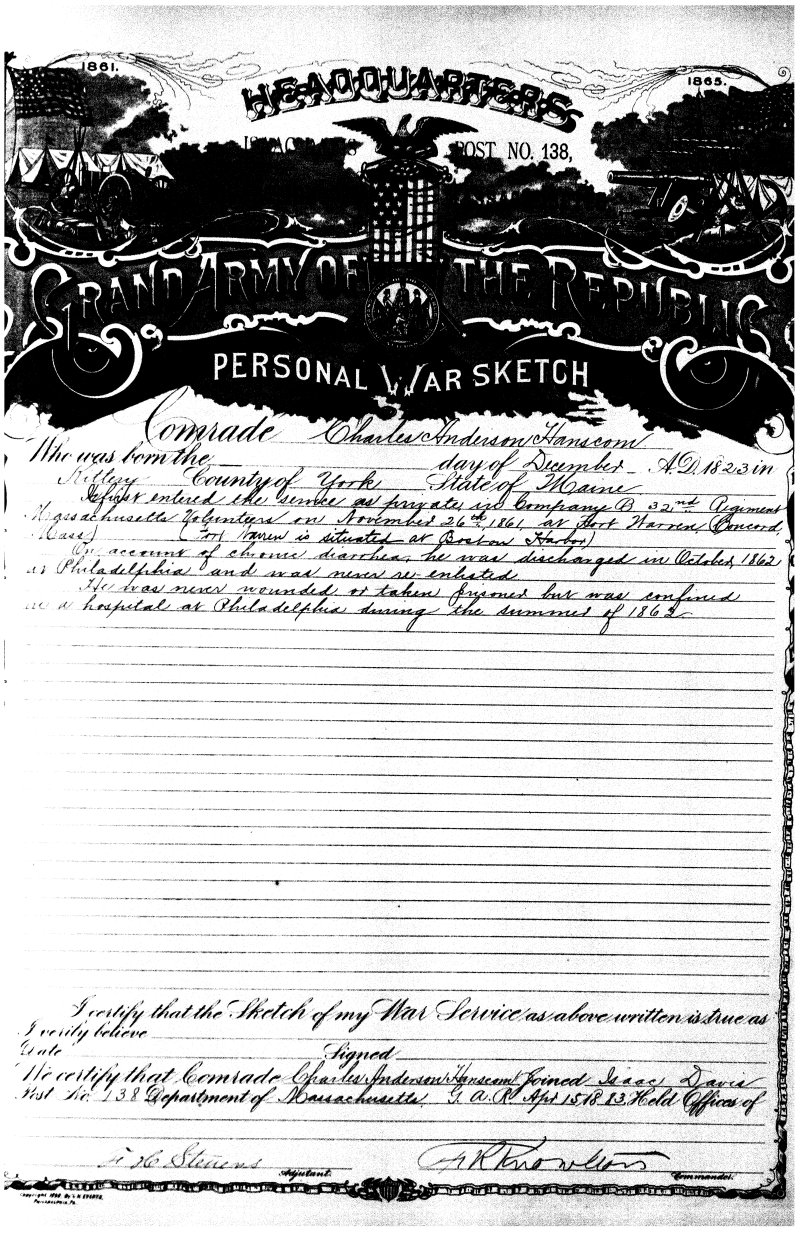 1861.
1865.
HEADQUARTERS
POST NO. 138,
GRAND ARMY OF THE REPUBLIC
PERSONAL WAR SKETCH
Comrade Charles Anderson Hanscom
Who was born the day of December A.D. 1823 in
Kittery County of York State of Maine
first entered the service as private in Company B, 32nd Regiment
Massachusetts Volunteers on November 26th, 1861, at Fort Warren, Concord,
Mass. (Fort Warren is situated at Boston Harbor)
On account of chronic diarrhea, he was discharged in October, 1862
at Philadelphia and was never re-enlisted.
He was never wounded or taken prisoner but was confined
in a hospital at Philadelphia during the summer of 1862
I certify that the Sketch of my War Service as above written is true as
I verily believe
Date Signed
We certify that Comrade Charles Anderson Hanscom Joined Isaac Davis
Post No. 138 Department of Massachusetts G. A. R. Apr 15 1883 Held Offices of
Stevens
Adjutant.
Knowlton
Commander.
Copyright 1890 By L.H. EVERTS.
Philadelphia, Pa.